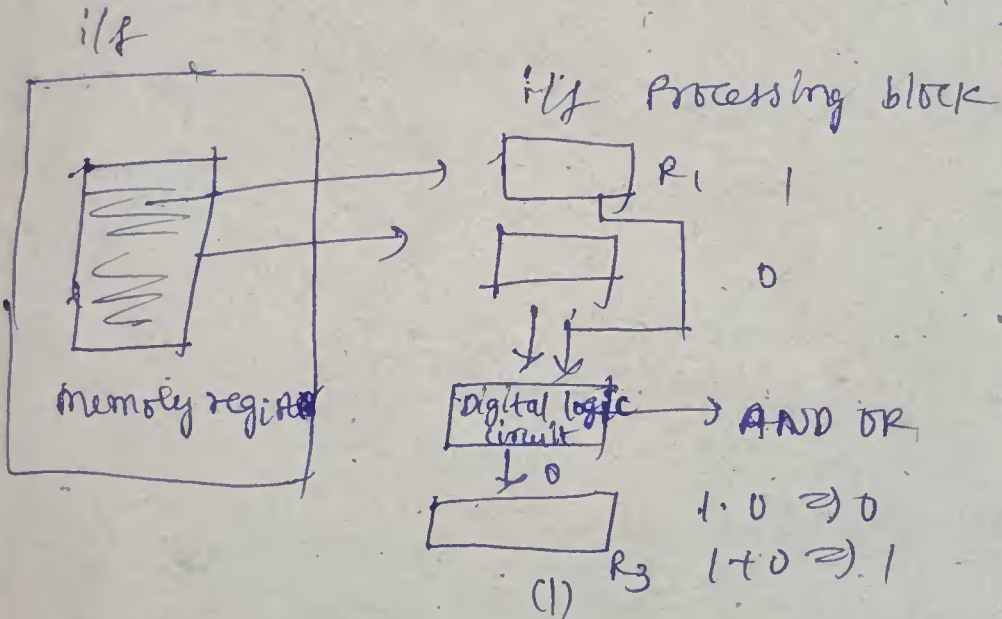 i/f
i/f Processing block
R1 1
0
memory
Digital logic
circuit
AND OR
0
1. 0 => 0
R3 1+0 => 1
(1)